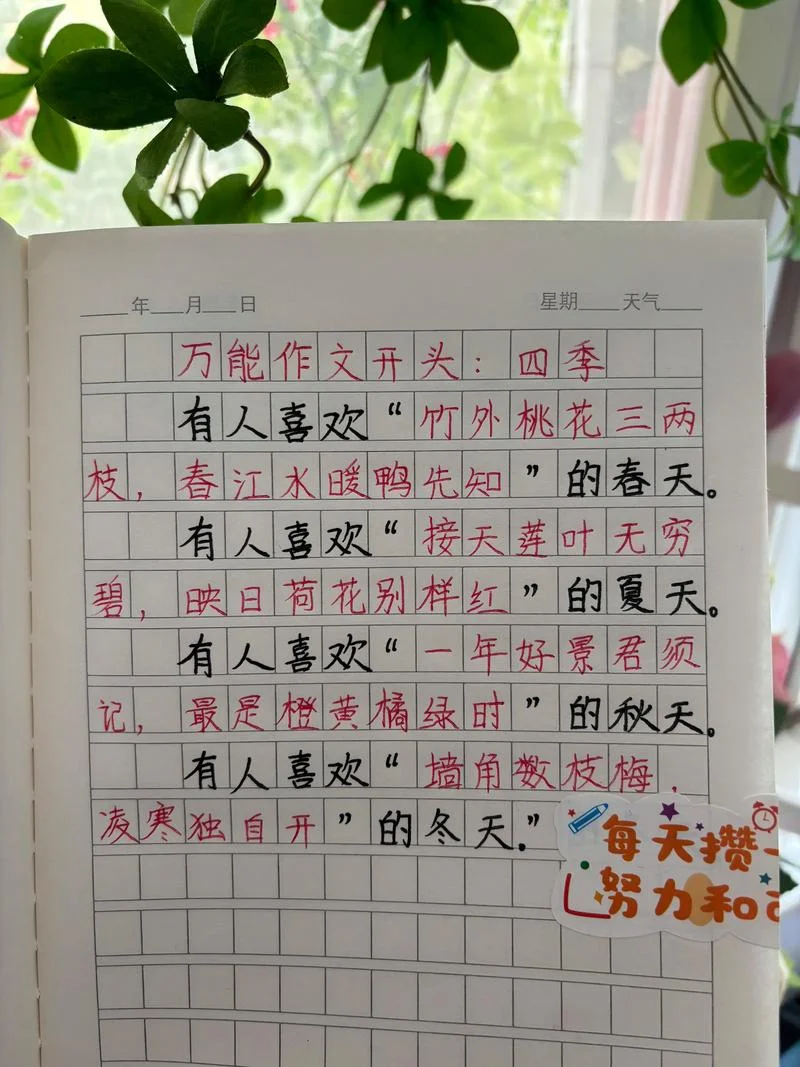 ____年___月___日 星期____天气____
万能作文开头：四季
有人喜欢“竹外桃花三两
枝，春江水暖鸭先知”的春天。
有人喜欢“接天莲叶无穷
碧，映日荷花别样红”的夏天。
有人喜欢“一年好景君须
记，最是橙黄橘绿时”的秋天。
有人喜欢“墙角数枝梅，
凌寒独自开”的冬天.”
每天攒一
努力和